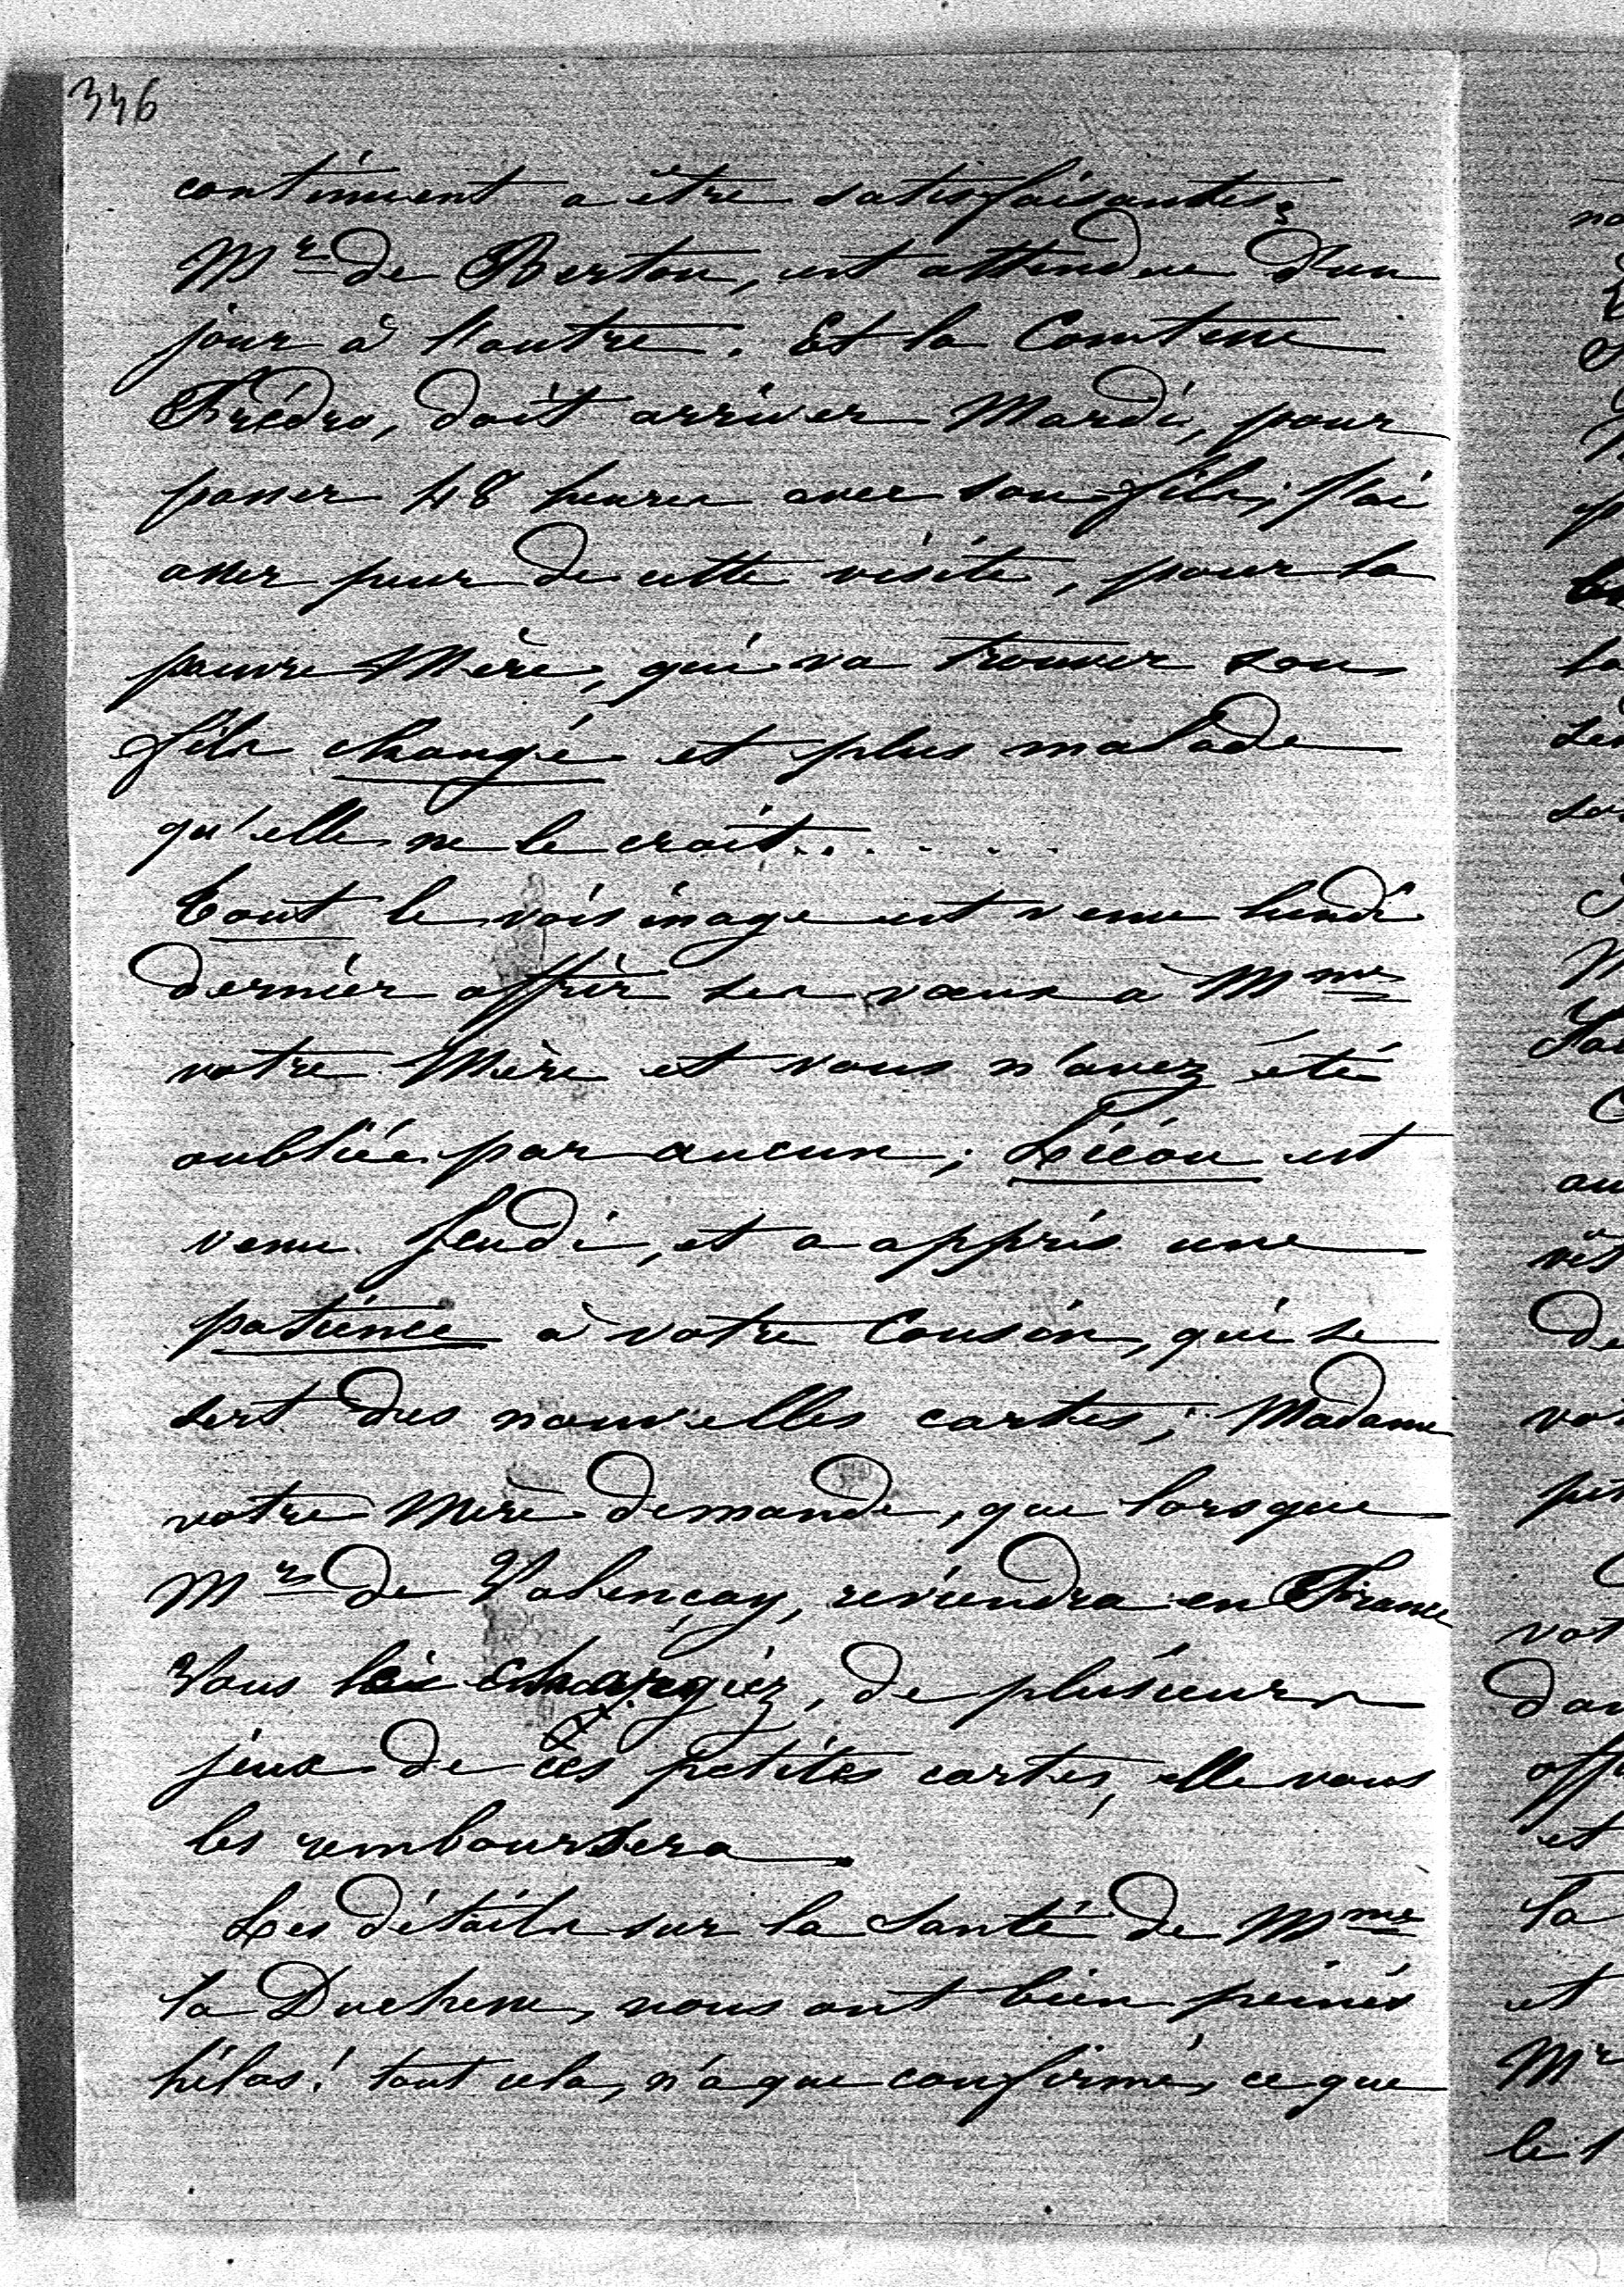 346
continuent a être satisfaisantes;
Mr de Berton, est attendue d'un
jour à l'autre. Et la Comtesse
Frédro, doit arriver Mardi, pour
passer 48 heures avec son fils; j'ai
assez peur de cette visite, pour la
pauvre Mère, qui va trouver son
fils changé et plus malade
qu'elle ne le croit......
Tout le voisinage est venu lundi
dernier offrir ses vœux à Mme
votre Mère et vous n'avez été
oubliée par aucun; Liéou est
venu Jeudi, et a appris une
patience à votre Cousin, qui se
sert des nouvelles cartes; Madame
votre Mère demande, que lorsque
Mr de Valençay, reviendra en France
Vous le chargiez, de plusieurs
jeux de ces petites cartes, elle vous
les remboursera.
Les détails sur la Santé de Mme
la Duchesse, nous ont bien peinés
hélas! tout cela, n'a que confirmé, ce que